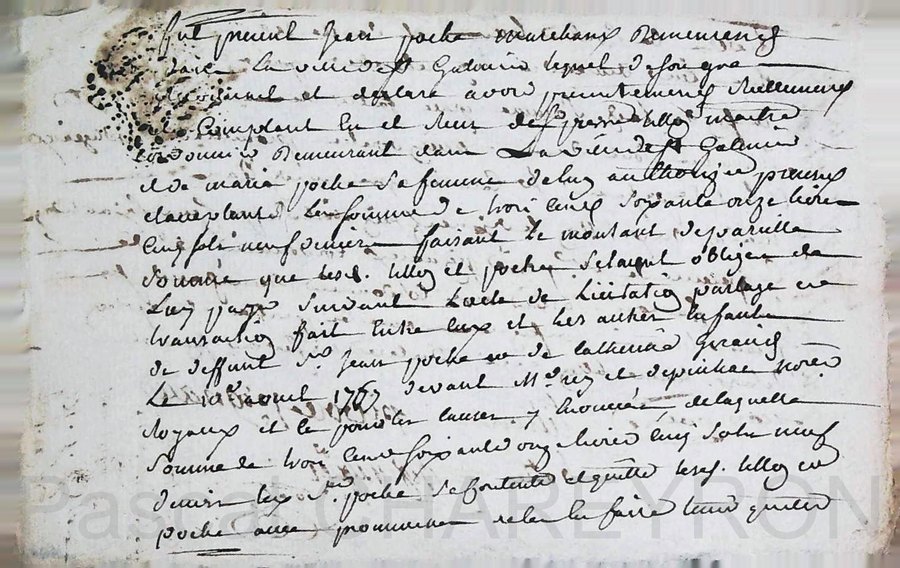 fut present Jean poche marchand Demeurant
dans La ville de St Galmier lequel de son gré
a reconnu et declaré avoir presentement Reellement
et Comptant Eu et Receu de Sr pierre tillon maitre
cordonnier Demeurant dans La ville de St Galmier
et de marie poche Sa femme de luy authorisée presents
et acceptants La Somme de trois cents Soixante onze livres
Cinq Sols neuf deniers faisant Le montant de pareille
Somme que lesd. tillon et poche S'etoient obligés de
Luy payer Suivant L'acte de Licitation partage et
transaction fait Entre Eux et les autres Enfants
de deffunt Sr Jean poche et de Catherine
Le avril 1767 devant Me Rey et depinhac notres
Royaux et le pour les causes y Enoncées, de laquelle
Somme de trois Cents Soixante onze livres Cinq Sols neuf
deniers led. Sr poche Se Contente et quitte lesd. tillon et
poche avec promesse de les En faire tenir quittes
Pascal CHAREYRON